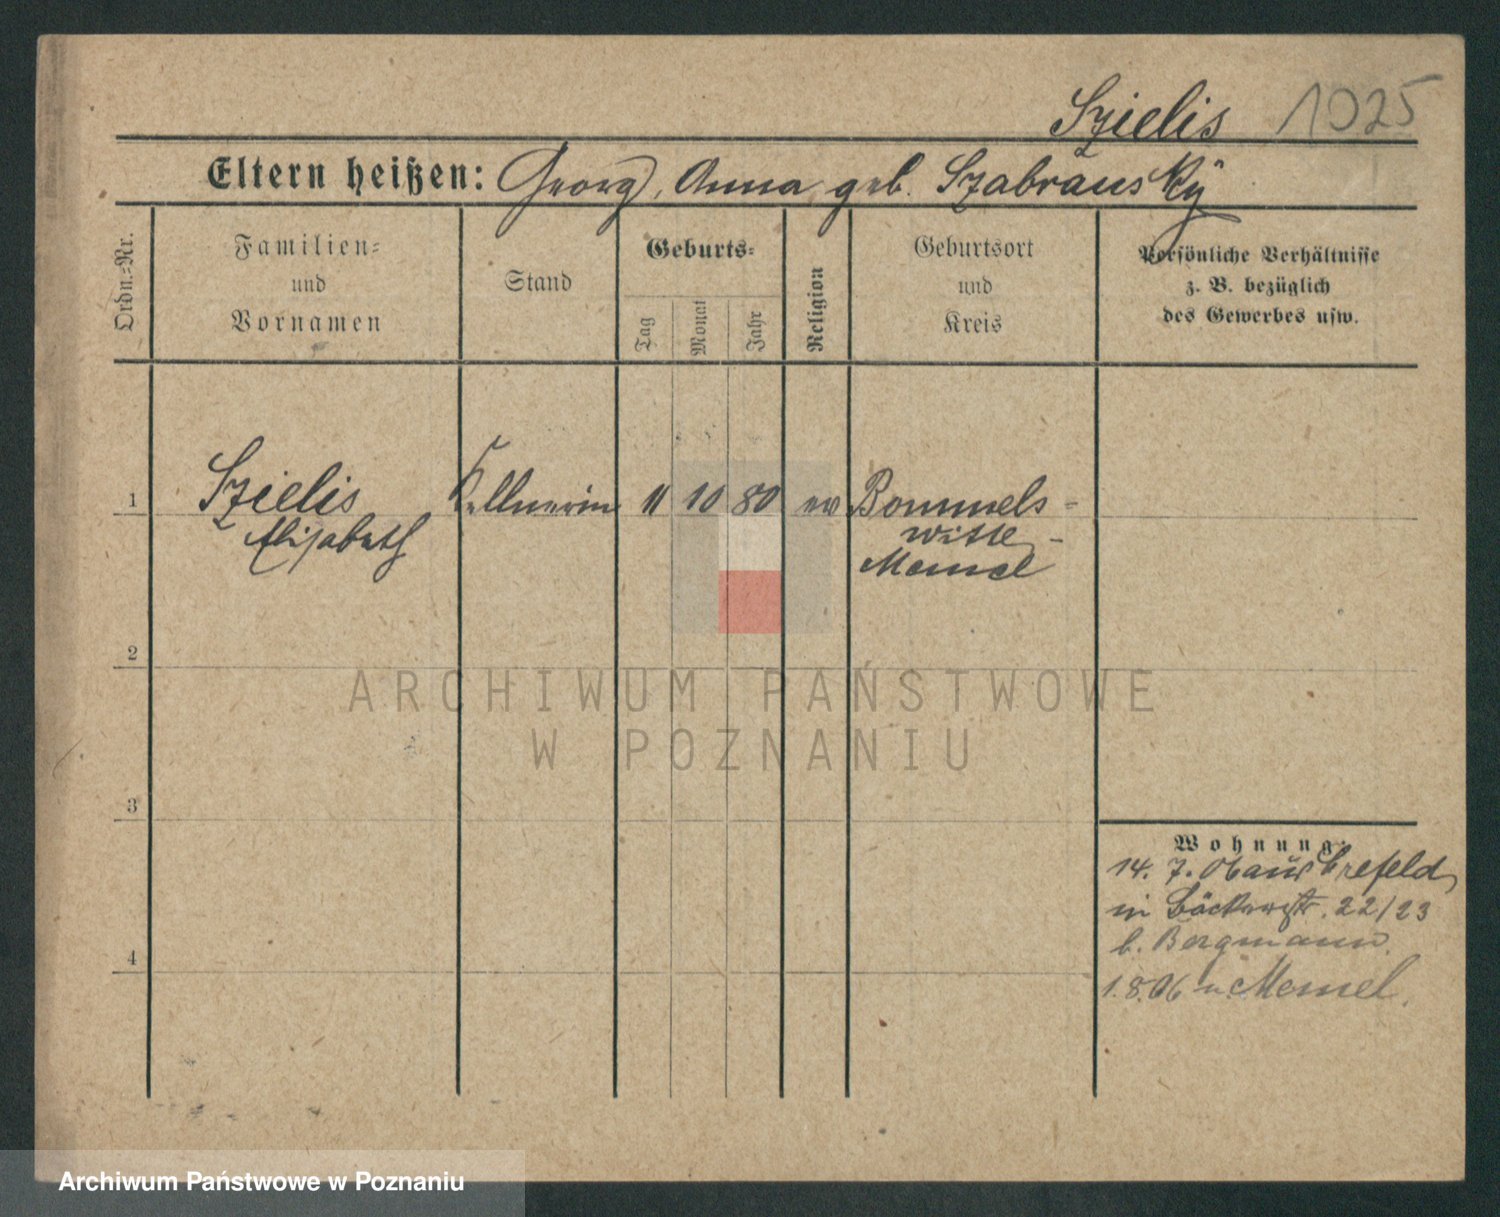 Szielis 1925
Eltern heißen: Georg, Anna geb. Szabrausky
Ordn.=Nr.
Familien=
und
Vornamen
Stand
Geburts=
Tag
Monat
Jahr
Religion
Geburtsort
und
Kreis
Persönliche Verhältnisse
z. B. bezüglich
des Gewerbes usw.
1 Szielis Kellnerin 11 10 80 ev Bommels-
Elisabeth witte -
Memel
2
3
4
Wohnung:
14. 7. 06 aus Crefeld
in Bäckerstr. 22/23
b. Bergmann.
1.8.06 n. Memel.
ARCHIWUM PAŃSTWOWE
W POZNANIU
Archiwum Państwowe w Poznaniu